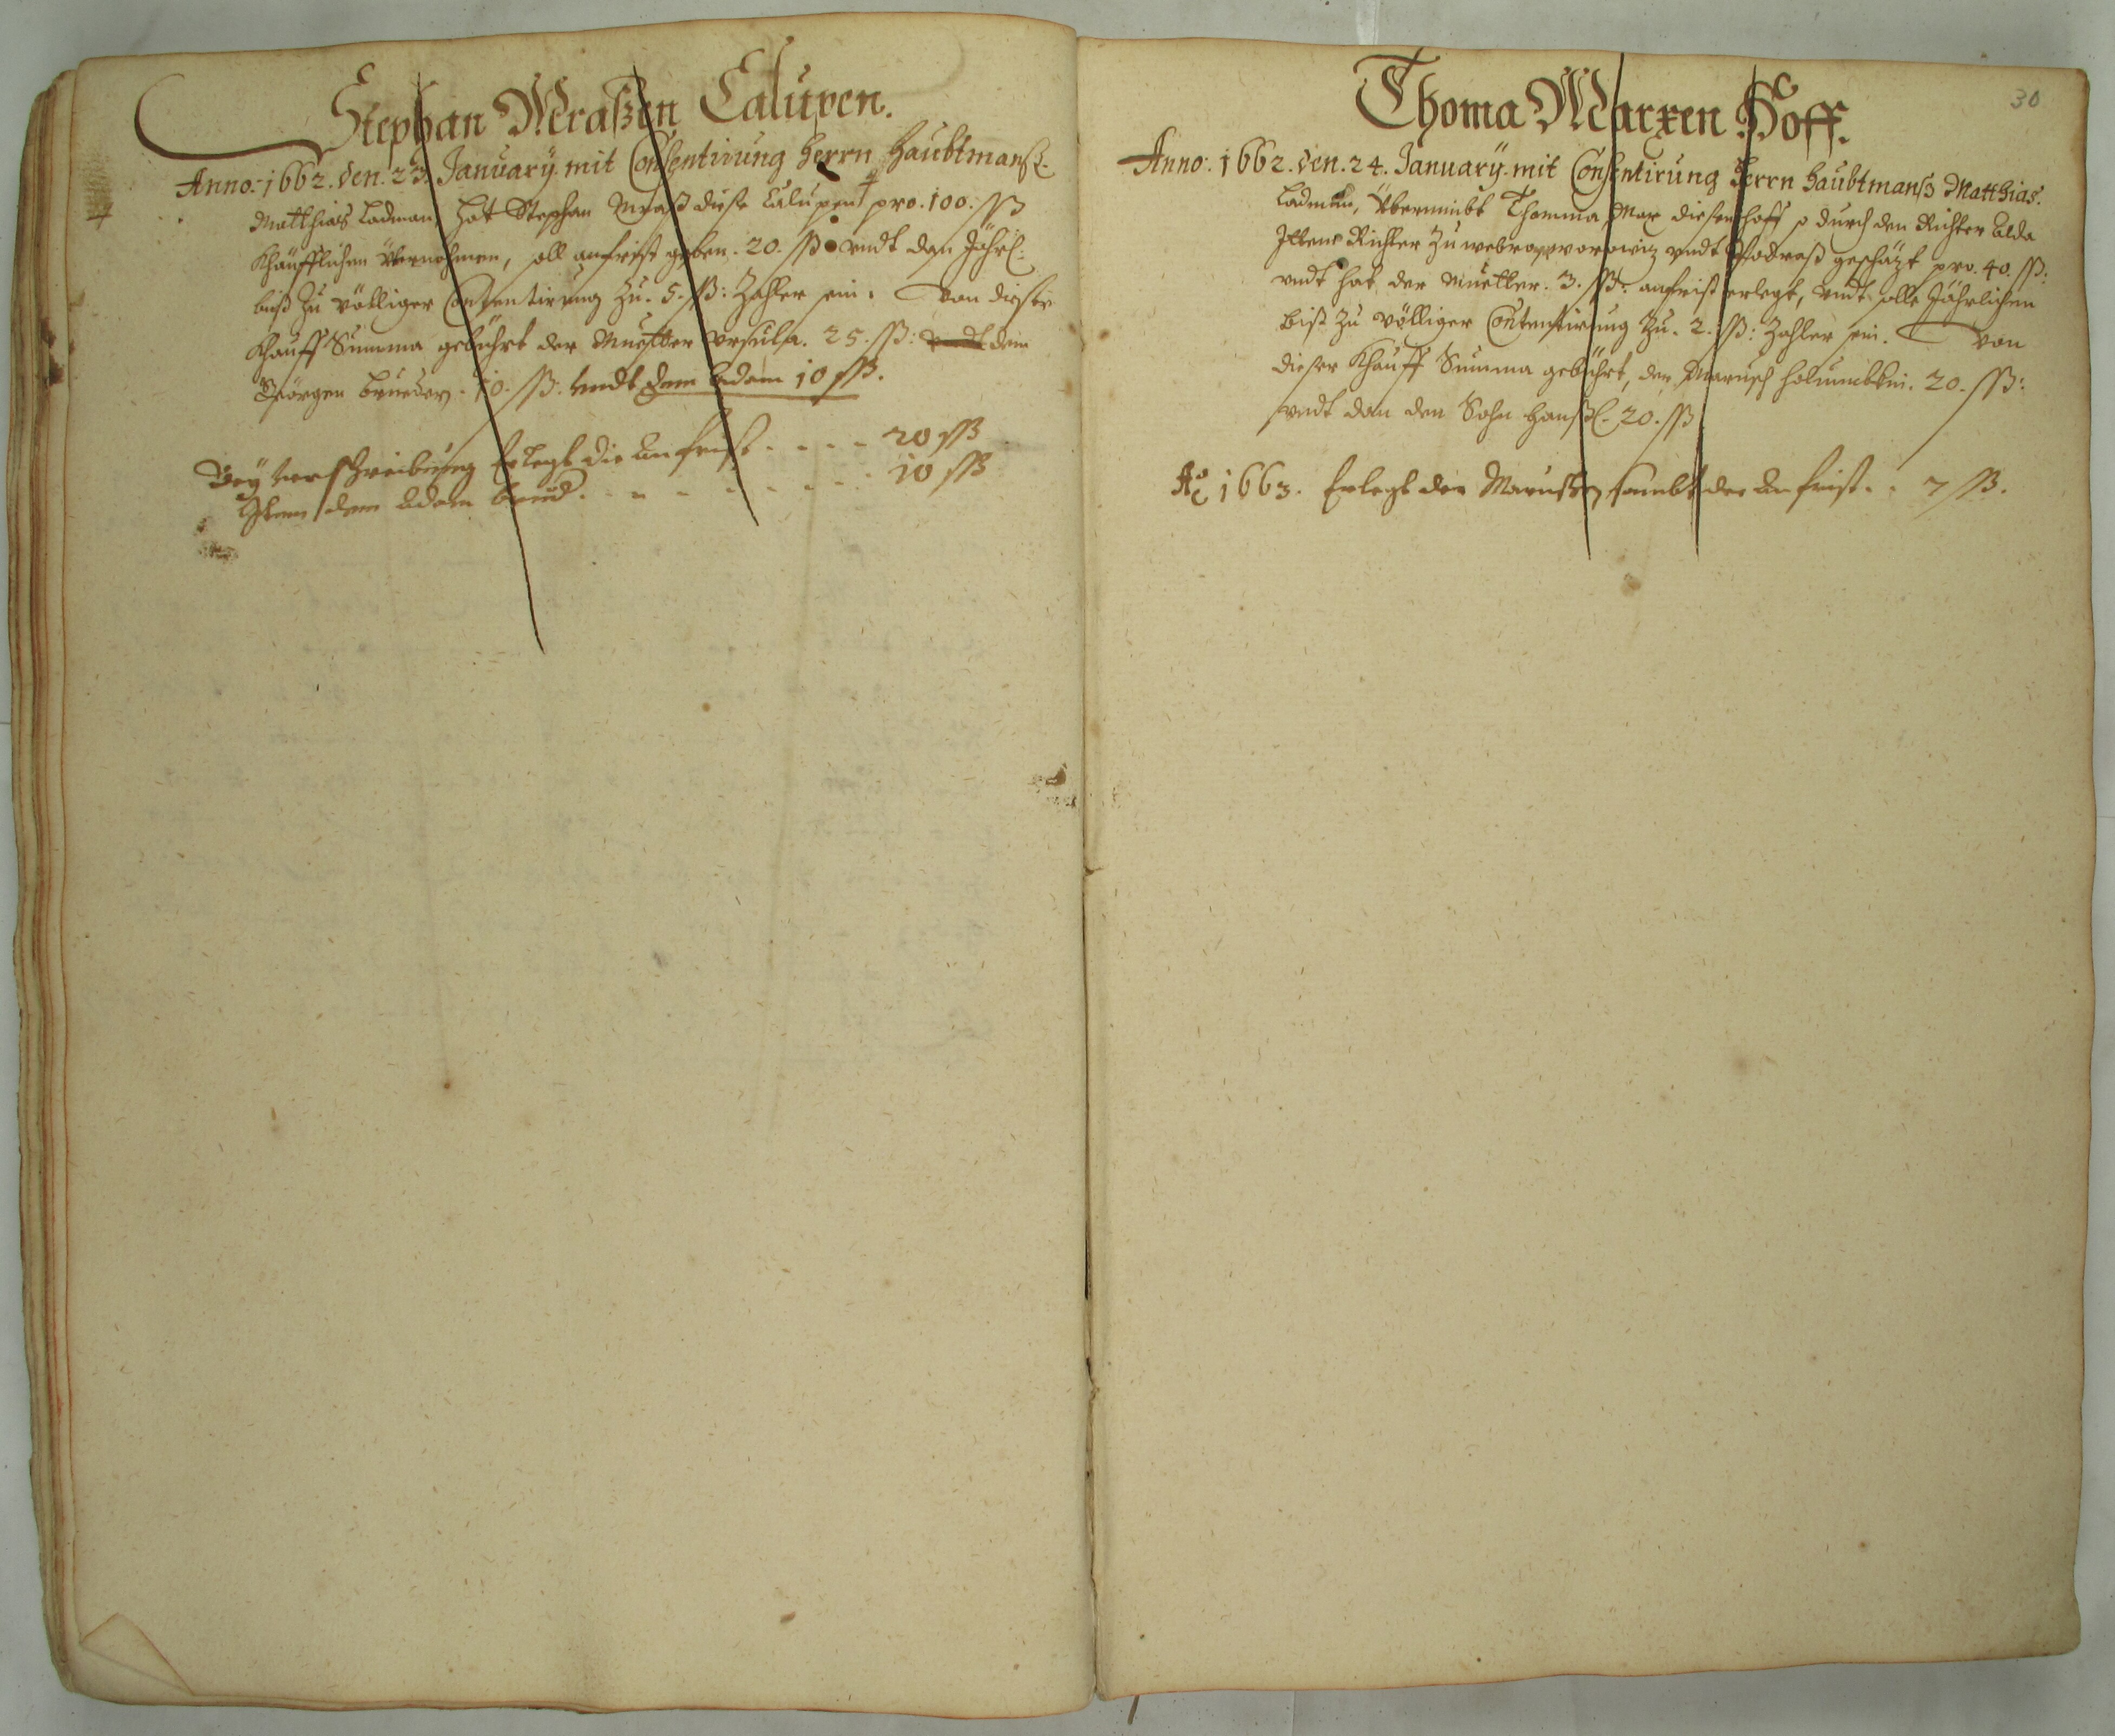 Stephan Mraßen Calupen.
Anno: 1662. den. 23. January. mit Consentirung Herrn Haubtmanß.
Matthias Ladman, hat Stephan Mraß diese Calupen pro. 100. ßß
Khäufflichen Übernohmen, soll anfrist geben. 20. ßß vndt dan Jährl:
biß zu völliger Contentirung zu. 5. ßß: Zahler sein. Von dieser
Khauff Summa gebührt der Muetter Ursula. 25. ßß: vndt dem
Görgen brueder. 10. ßß. vndt dem Adam 10 ßß.
Bey verschreibung Erlegt die anfrist - - - - 20 ßß
Item dem Adam brud. - - - - - - - 10 ßß
30
Thoma Marxen Hoff.
Anno: 1662. den. 24. January. mit Consentirung Herrn Haubtmanß Matthias.
Ladman, Übernimbt Thomma Marx diesen hoff so durch den Richter Alda
Richter zu vndt geschäzt pro. 40. ßß:
vndt hat der Muetter. 3. ßß: anfrist erlegt, vndt solle Jährlichen
biß zu völliger Contentirung zu. 2. ßß: Zahler sein. Von
dieser Khauff Summa gebührt, der Marusch 20. ßß:
vndt dan den Sohn Hanßl. 20. ßß
Ao 1663. Erlegt der sambt der anfrist. . 7 ßß.